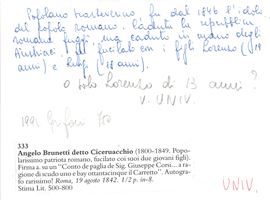 Popolano trasteverino, fu dal 1846 l'idolo
del popolo romano. Caduta la repubblica
romana fuggì, ma caduto in mano degli
Austriaci fu fucilato con i figli Lorenzo (19
anni) e Luigi (18 anni).
o solo Lorenzo di 13 anni?
V. UNIV.
1991
333
Angelo Brunetti detto Ciceruacchio (1800-1849. Popo-
larissimo patriota romano, fucilato coi suoi due giovani figli).
Firma a. su un "Conto de paglia de Sig. Giuseppe Corsi... a ra-
gione di scudo uno e bay ottantacinque il Carretto". Autogra-
fo rarissimo! Roma, 19 agosto 1842. 1/2 p. in-8.
Stima Lit. 500-800
UNIV.